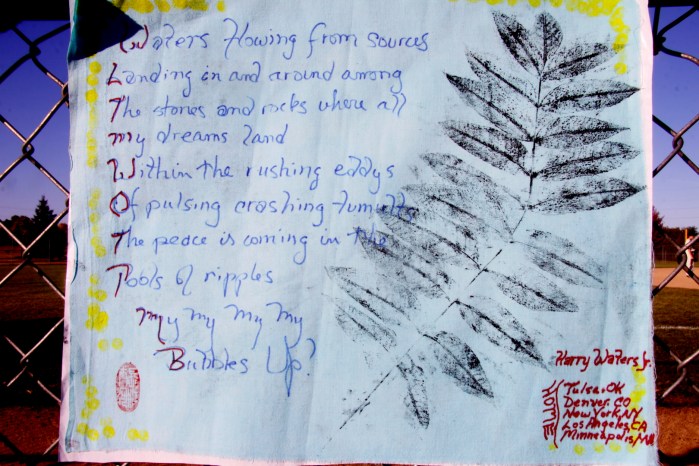 Waters flowing from sources
Landing in and around among
The stones and rocks where all
my dreams land
Within the rushing eddys
Of pulsing crashing tumults
The peace is coming in the
Pools of ripples
My my my my
Bubbles Up?
Harry Waters Jr.
HOME
Tulsa, OK
Denver, CO
New York, NY
Los Angeles, CA
Minneapolis, MN